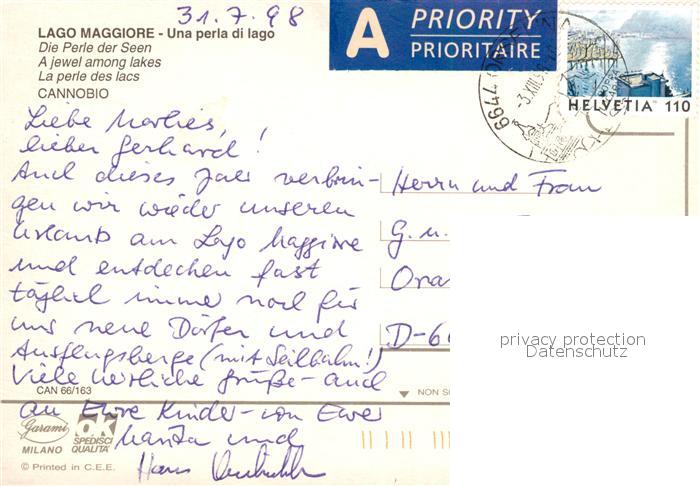 31.7.98
LAGO MAGGIORE - Una perla di lago
Die Perle der Seen
A jewel among lakes
La perle des lacs
CANNOBIO
A PRIORITY
PRIORITAIRE
6644 ORSELINA
HELVETIA 110
Liebe Marlies,
lieber Gerhard!
Auch dieses Jahr verbrin-
gen wir wieder unseren
Urlaub am Lago Maggiore
und entdecken fast
täglich immer noch für
uns neue Dörfer und
Ausflugsberge (mit Seilbahn!)
Viele herzliche Grüße - auch
an Eure Kinder - von Eurer
und
Hans
Herrn und Frau
G. u.
Ora
D-66
privacy protection
Datenschutz
CAN 66/163
NON S
Garami
MILANO
ok
SPEDISCI
QUALITÀ
© Printed in C.E.E.